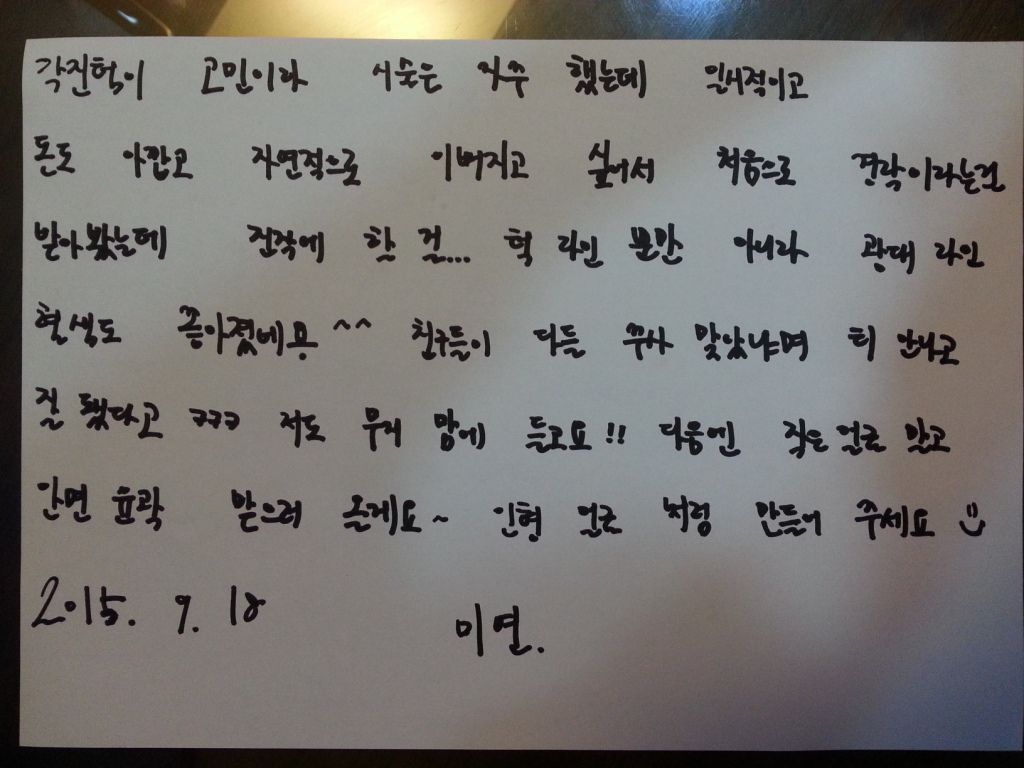 각진턱이 고민이라 시술은 자주 했는데 일시적이고
돈도 아깝고 자연적으로 이뻐지고 싶어서 처음으로 경락이라는걸
받아봤는데 진작에 할 걸... 턱 라인 뿐만 아니라 광대 라인
혈색도 좋아졌네용 ^^ 친구들이 다들 주사 맞았냐며 티 안나고
잘 됐다고 ㅋㅋㅋ 저도 무지 맘에 들고요!! 다음엔 작은얼굴 말고
단면 윤곽 받으러 올게요~ 인형 얼굴 처럼 만들어 주세요
2015. 9. 18
미연.